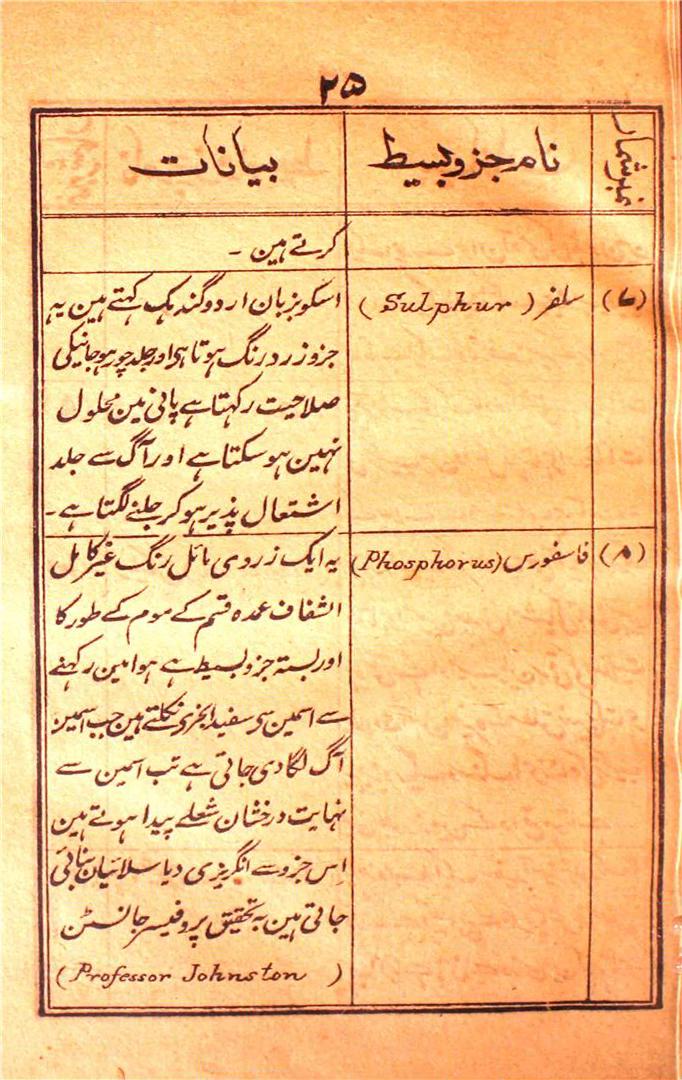 ۲۵
نمبر شمار
نام جزو بسیط
بیانات
کرتے ہین ۔
(۷)
سلفر ( Sulphur )
اسکو بزبان اردو گندہک کہتے ہین یہ
جزو زرد رنگ ہوتا ہی اور جلد چور ہو جانیکی
صلاحیت رکہتا ہے پانی مین محلول
نہین ہو سکتا ہے اور آگ سے جلد
اشتعال پذیر ہو کر جلنے لگتا ہے ۔
(۸)
فاسفورس (Phosphorus)
یہ ایک زردی مائل رنگ غیر کامل
الشفاف عمدہ قسم کے موم کے طور کا
اور بستہ جزو بسیط ہے ہوا مین رکہنے
سے اسمین سی سفید ابخری نکلتے ہین جب اسمین
آگ لگا دی جاتی ہے تب اسمین سے
نہایت درخشان شعلے پیدا ہوتے ہین
اِس جزو سے انگریزی دیا سلائیان بنائی
جاتی ہین بہ تحقیق پروفیسر جانسٹن
(Professor Johnston )